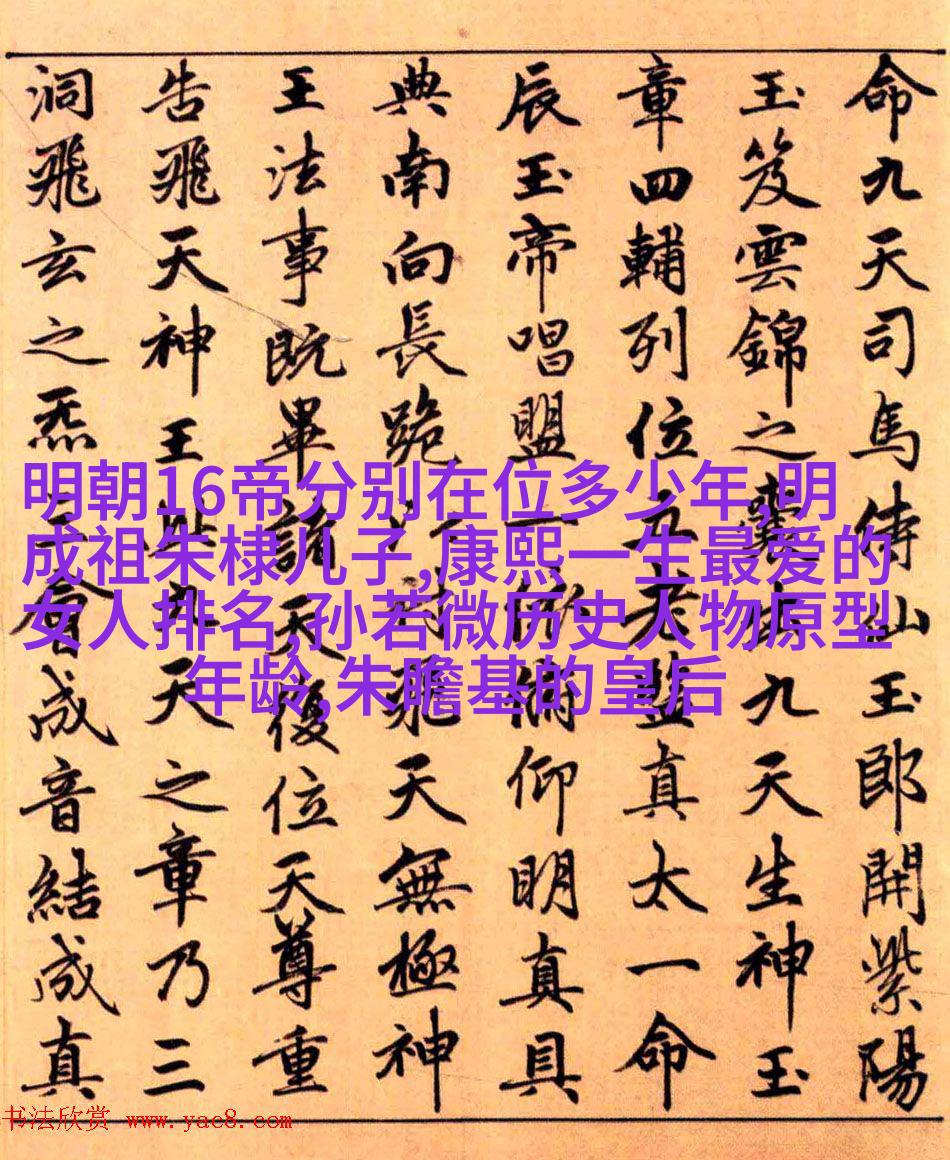 命九天司馬侍仙玉郎開紫陽
玉笈雲錦之囊出九天生神玉
章四輔列位五老監真太一命
辰玉帝唱盟一仰明真具
典南向長跪飛天無極神
王法事既畢諸天復位天尊重
告飛天神王此九天之章乃三
洞飛玄之炁三會成音結成真
明朝16帝分别在位多少年,明
成祖朱棣儿子,康熙一生最爱的
女人排名,孙若微历史人物原型
年龄,朱瞻基的皇后
书法欣赏 www.yac8.com